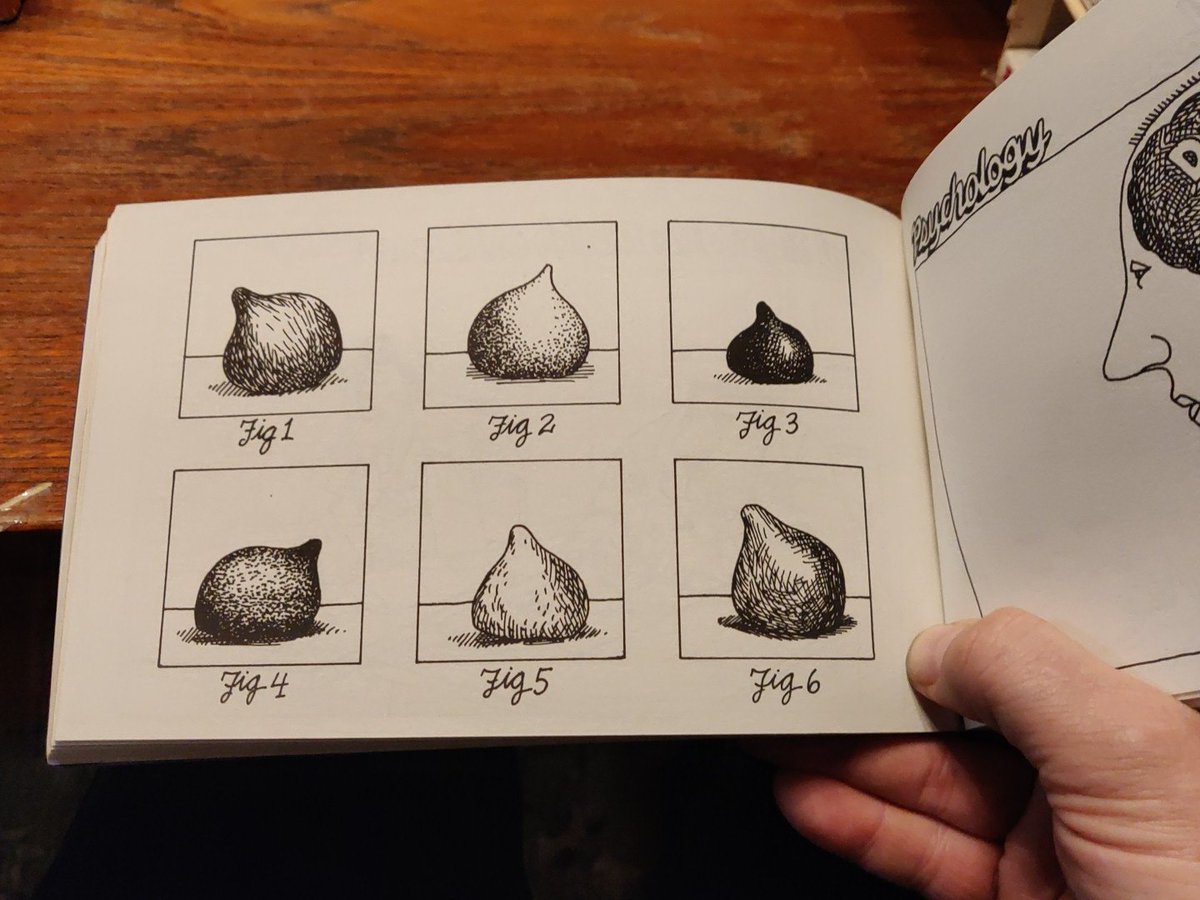 Fig 1
Fig 2
Fig 3
Fig 4
Fig 5
Fig 6
Psychology